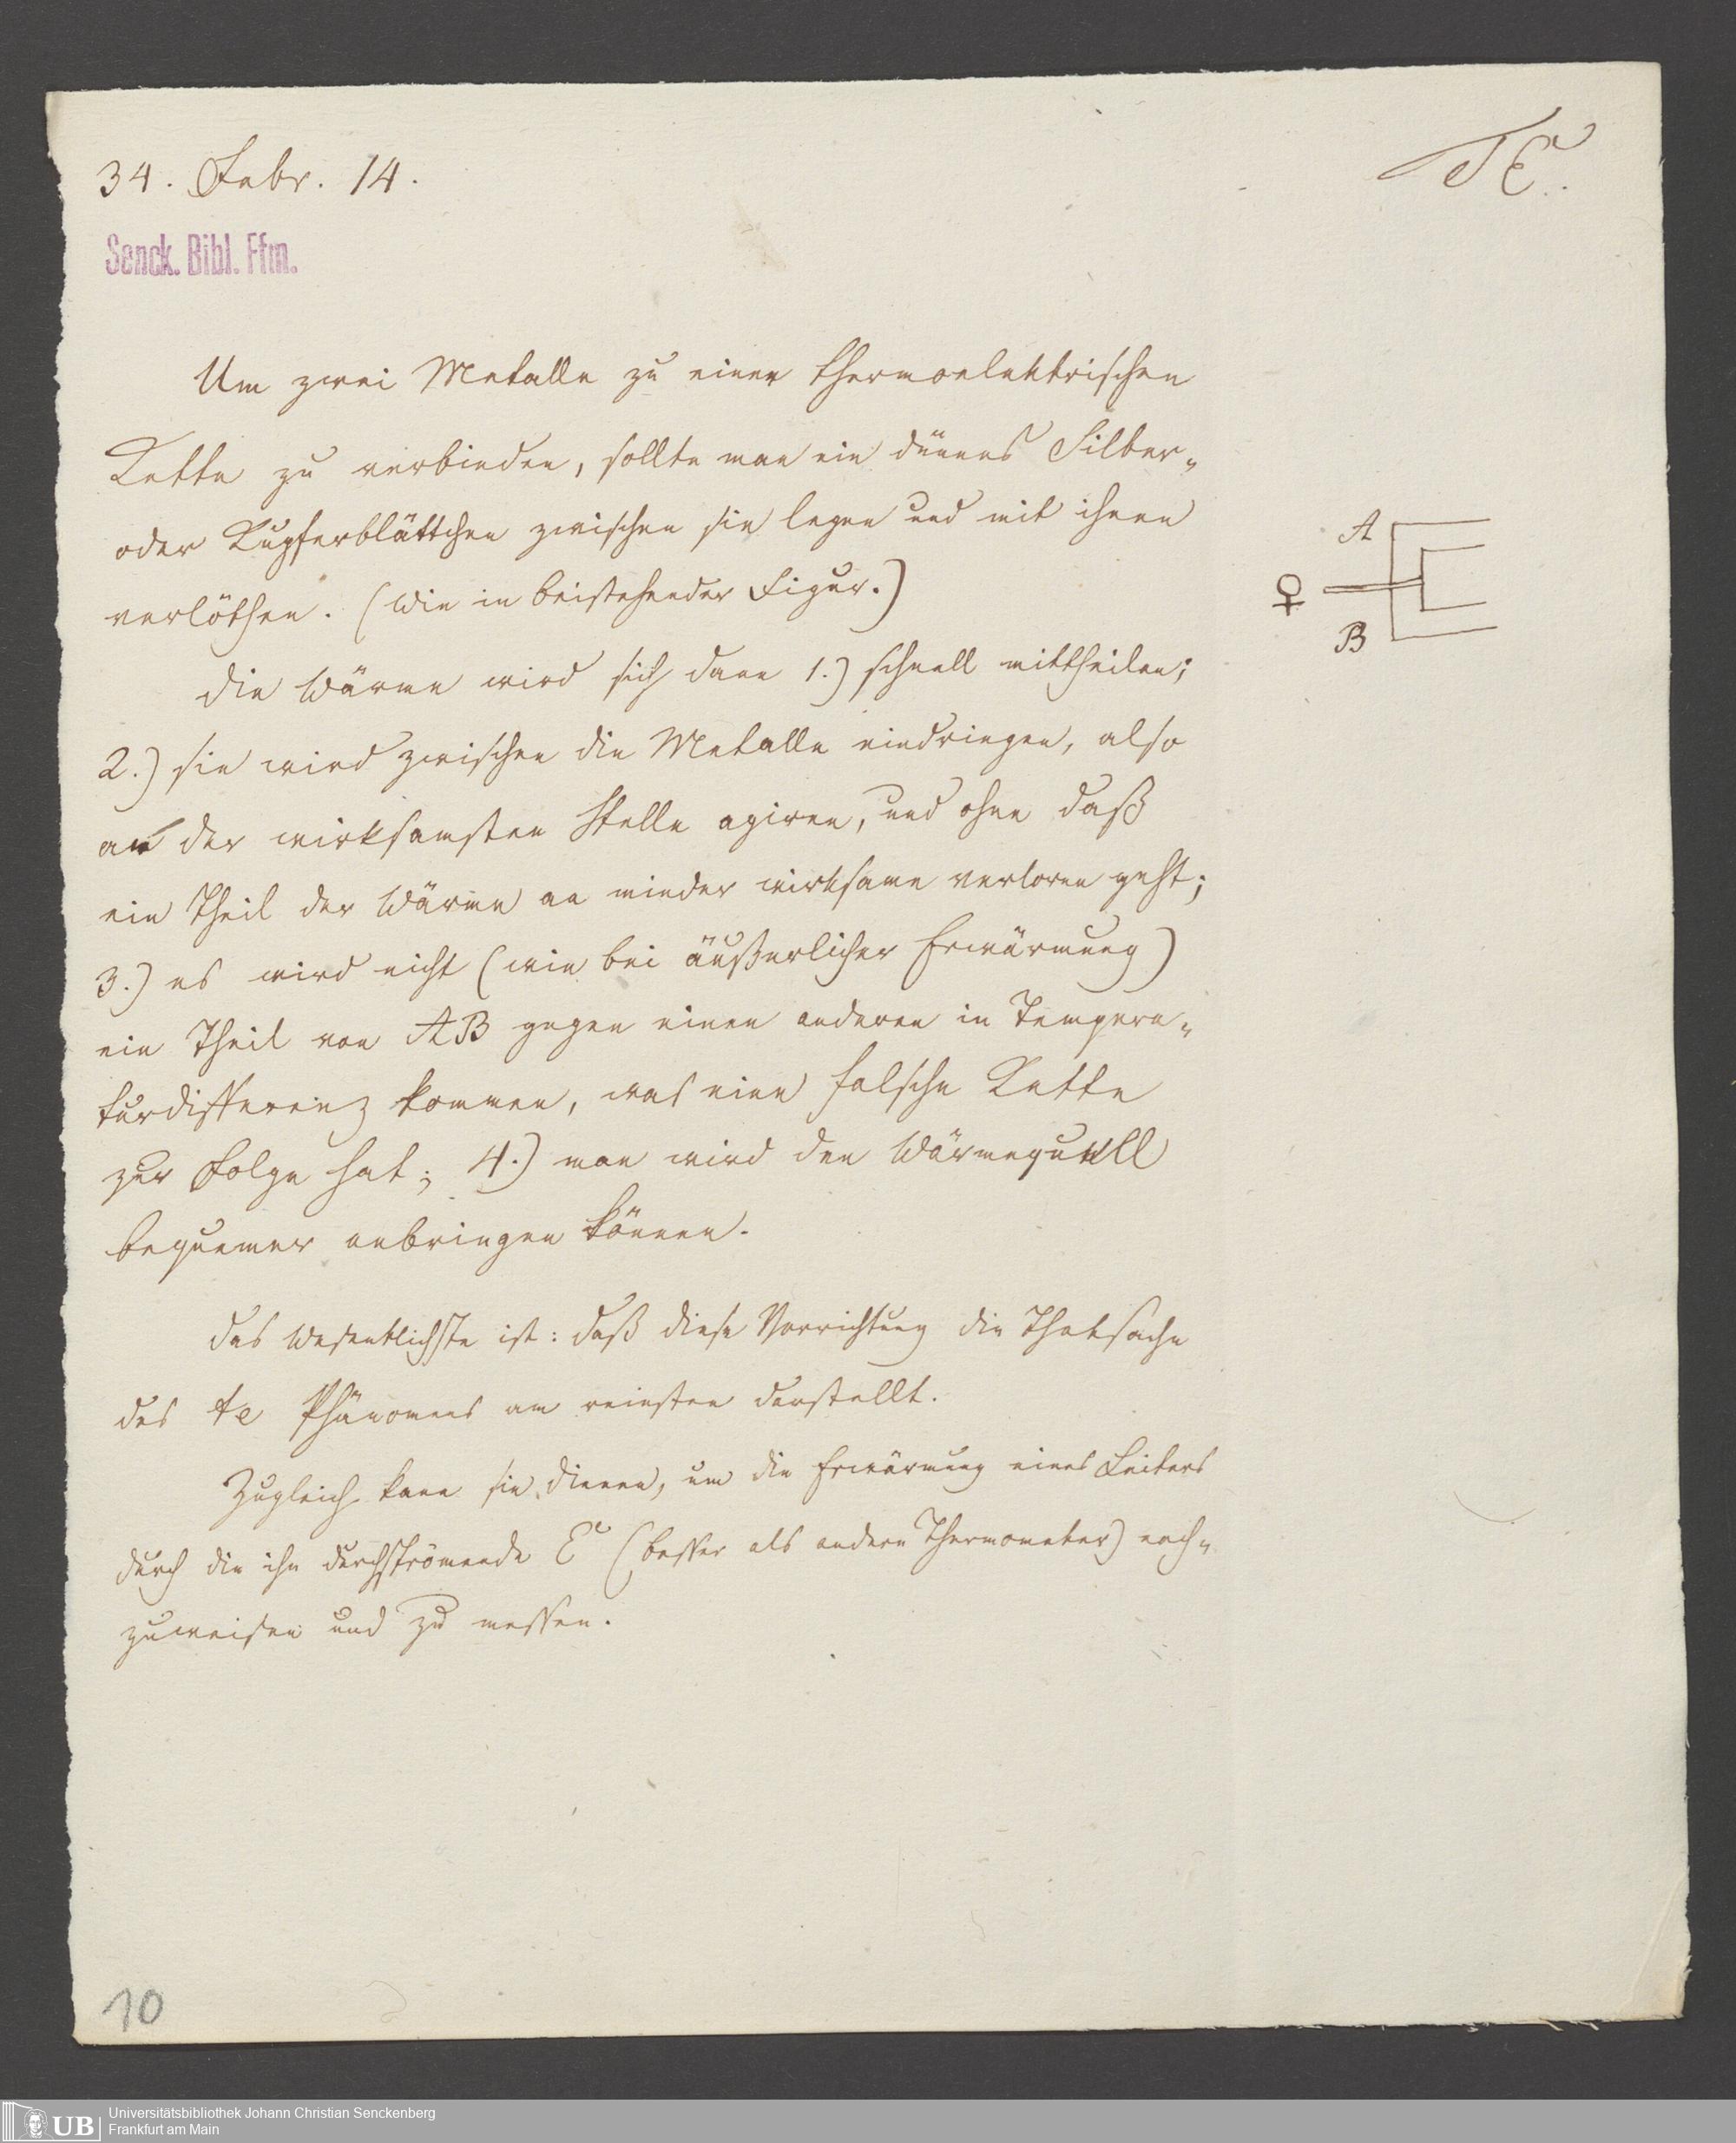 34. Febr. 14.
TE.
Senck. Bibl. Ffm.
Um zwei Metalle zu einer thermoelektrischen
Kette zu verbinden, sollte man ein dünnes Silber-
oder Kupferblättchen zwischen sie legen und mit ihnen
verlöthen. (Wie in beistehender Figur.)
A
♀
B
Die Wärme wird sich dann 1.) schnell mittheilen;
2.) sie wird zwischen die Metalle eindringen, also
an der wirksamsten Stelle agiren, und ohne daß
ein Theil der Wärme an minder wirksame verloren geht;
3.) es wird nicht (wie bei äußerlicher Erwärmung)
ein Theil von AB gegen einen anderen in Tempera-
turdifferenz kommen, was eine falsche Kette
zur Folge hat; 4.) man wird den Wärmequell
bequemer anbringen können.
Das Wesentlichste ist: daß diese Vorrichtung die Thatsache
des te Phänomens am reinsten darstellt.
Zugleich kann sie dienen, um die Erwärmung eines Leiters
durch die ihn durchströmende E (besser als andere Thermometer) nach-
zuweisen und zu messen.
10
UB
Universitätsbibliothek Johann Christian Senckenberg
Frankfurt am Main